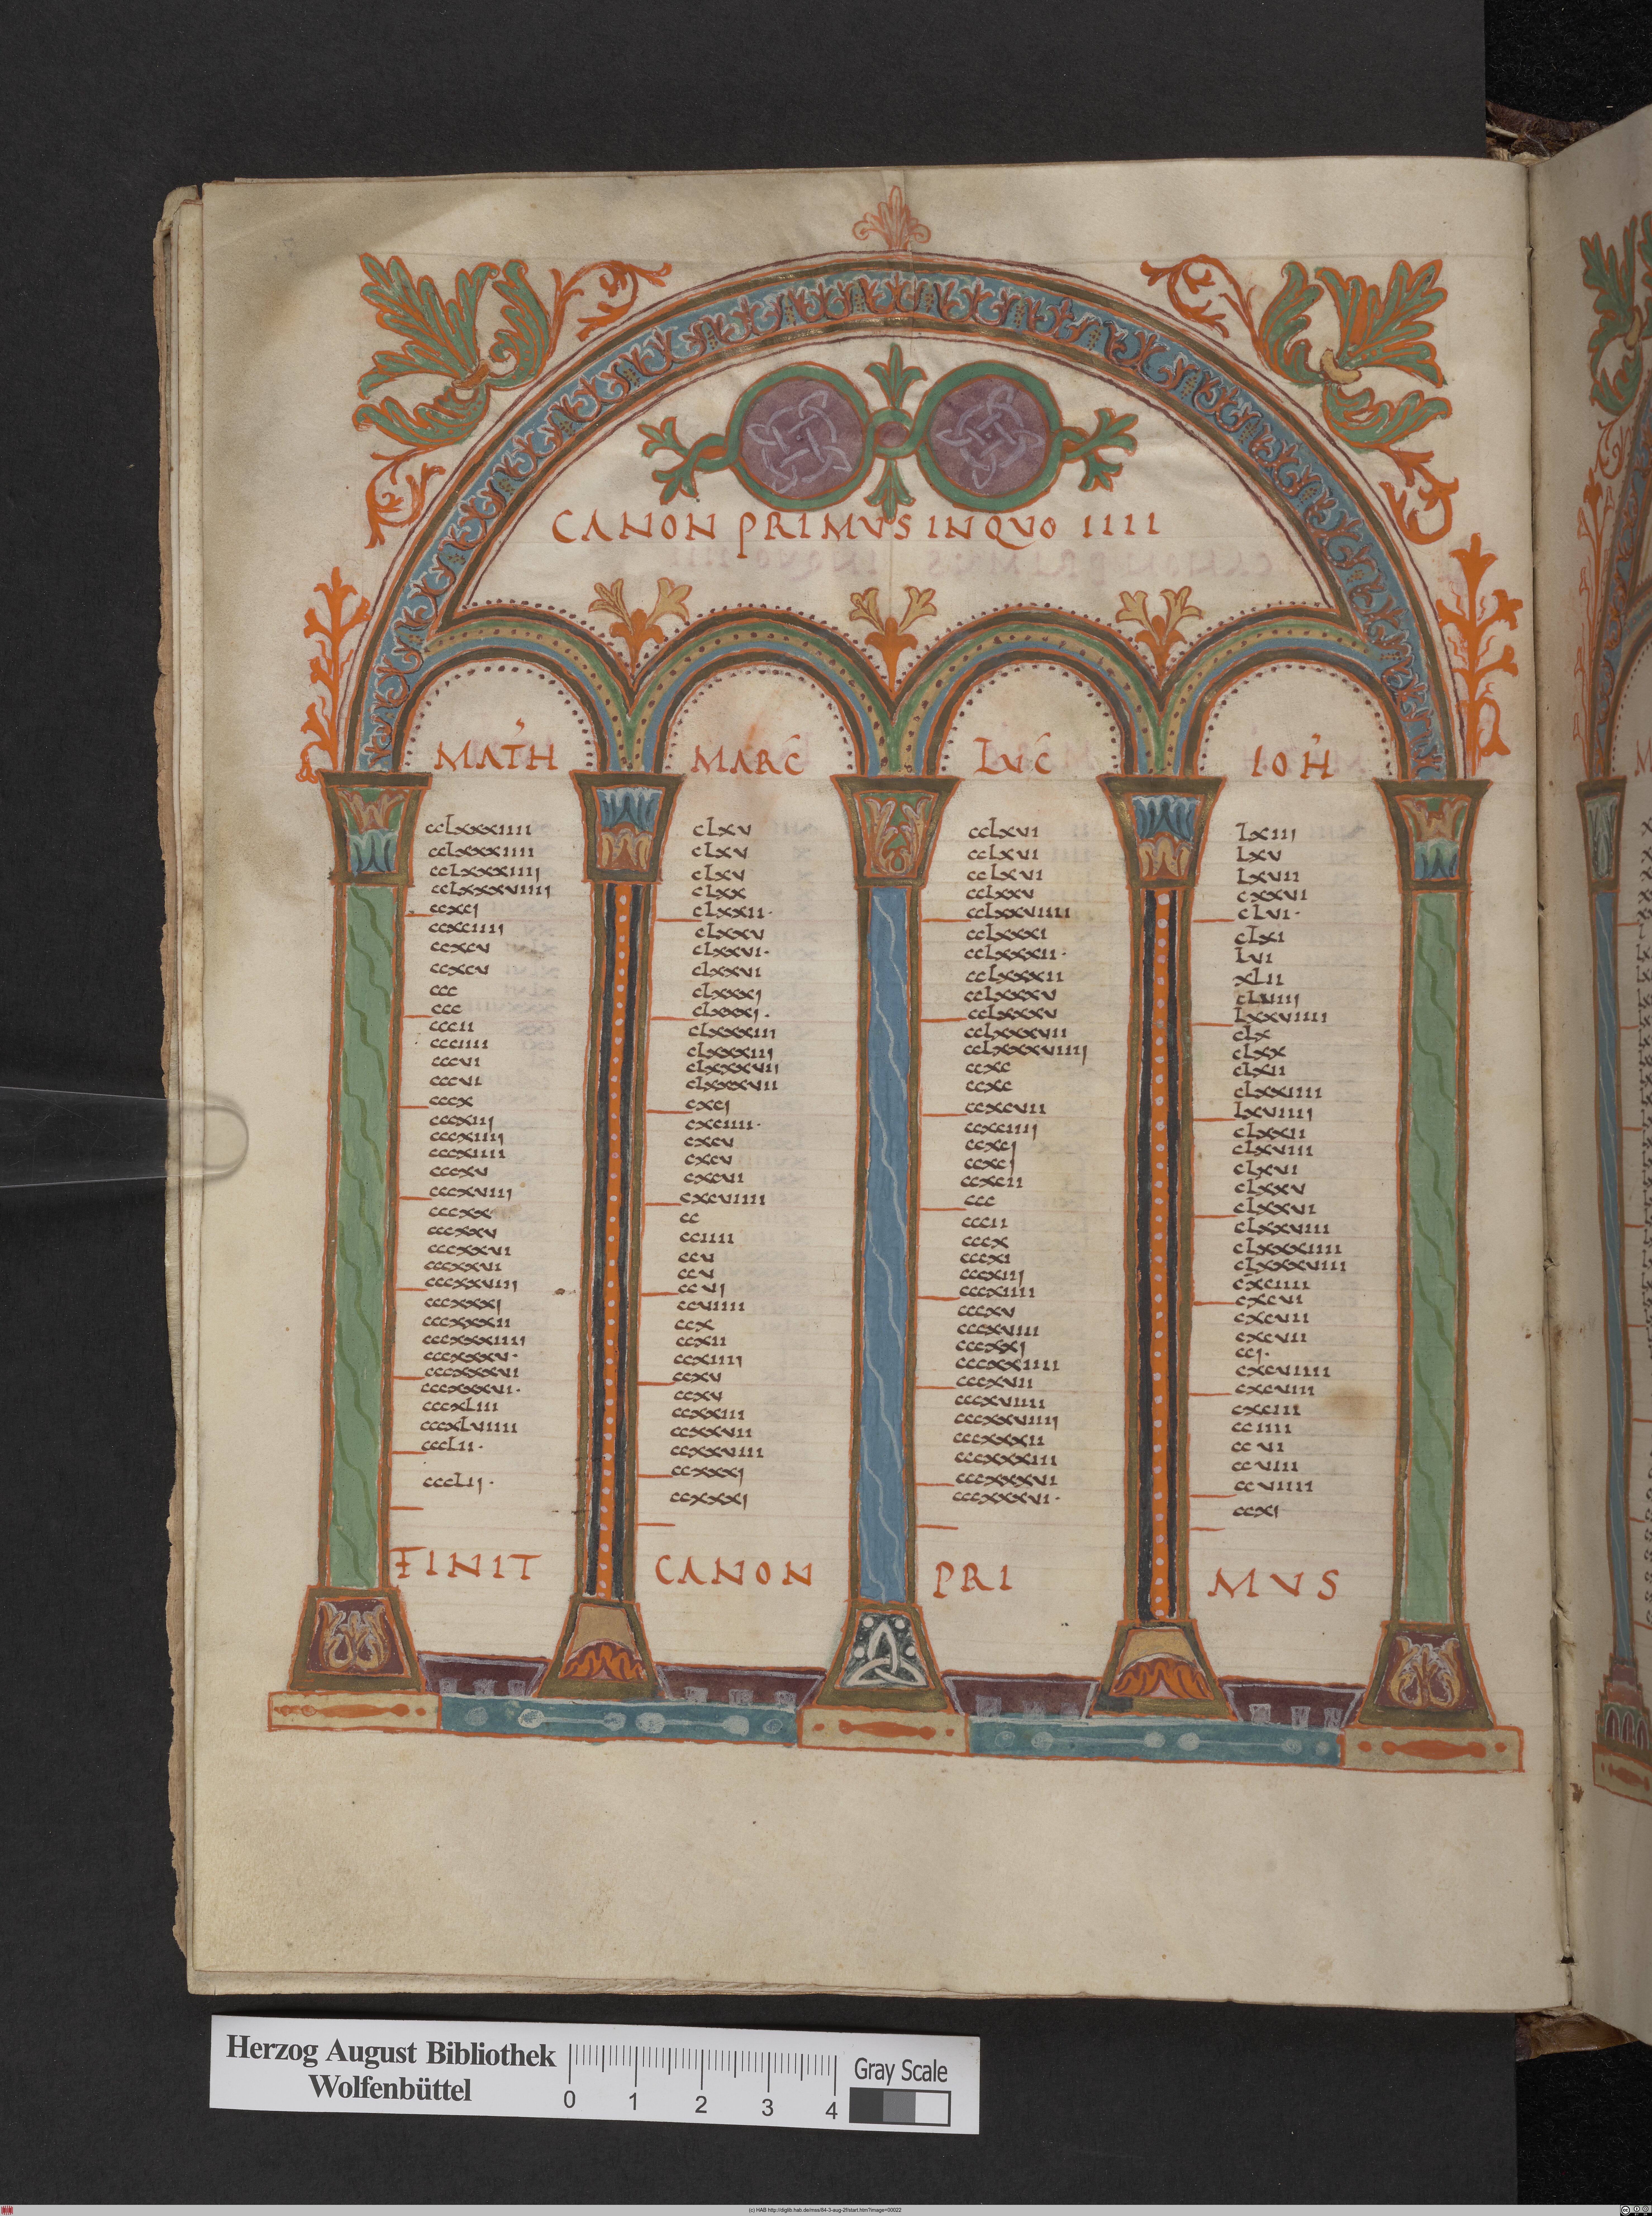 CANON PRIMVS IN QVO IIII
MATH
ccLxxxiiii
ccLxxxiiii
ccLxxxiiij
ccLxxxviiij
ccxcj
ccxciiij
ccxcv
ccxcv
ccc
ccc
cccii
ccciiii
cccvi
cccvi
cccx
cccxiij
cccxiiij
cccxiiii
cccxv
cccxviij
cccxx
cccxxv
cccxxvi
cccxxvi
cccxxviij
cccxxxj
cccxxxii
cccxxxiiii
cccxxxv·
cccxxxvi
cccxxxvi·
cccxLiii
cccxLviiii
cccLii·
cccLij·
MARC
cLxv
cLxv
cLxv
cLxx
cLxxii·
cLxxv
cLxxvi·
cLxxvi
cLxxxj
cLxxxj·
cLxxxiii
cLxxxiij
cLxxxvij
cLxxxvii
cxcj
cxciiii·
cxcv
cxcv
cxcvi
cxcviiii
cc
cciiii
ccv
ccv
ccvj
ccviiii
ccx
ccxii
ccxiiij
ccxv
ccxv
ccxxiii
ccxxvii
ccxxviiii
ccxxxj
ccxxxj
LVC
ccLxvi
ccLxvi
ccLxvi
ccLxxv
ccLxxviiii
ccLxxxi
ccLxxxii·
ccLxxxii
ccLxxxv
ccLxxxv
ccLxxxvii
ccLxxxviiij
ccxc
ccxc
ccxcvii
ccxciiij
ccxcj
ccxcj
ccxcii
ccc
cccii
cccx
cccxi
cccxiij
cccxiiii
cccxv
cccxviii
cccxxj
cccxxiiii
cccxvii
cccxviiii
cccxxviiij
cccxxxii
cccxxxiii
cccxxxvi
cccxxxvi·
IOH
Lxiij
Lxv
Lxvii
cxxvi
cLvi·
cLxi
Lvi
xLii
cLviiij
Lxxviiii
cLx
cLxx
cLxii
cLxxiiii
Lxviiij
cLxxii
cLxviii
cLxvi
cLxxv
cLxxvi
cLxxviii
cLxxxiiii
cLxxxviii
cxciiii
cxcvi
cxcvii
cxcvii
ccj·
cxcviiii
cxcviii
cxciii
cciiii
ccvi
ccviii
ccviiii
ccxi
FINIT CANON PRI MVS
Herzog August Bibliothek
Wolfenbüttel
0 1 2 3 4
Gray Scale
(c) HAB http://diglib.hab.de/mss/84-3-aug-2f/start.htm?image=00022